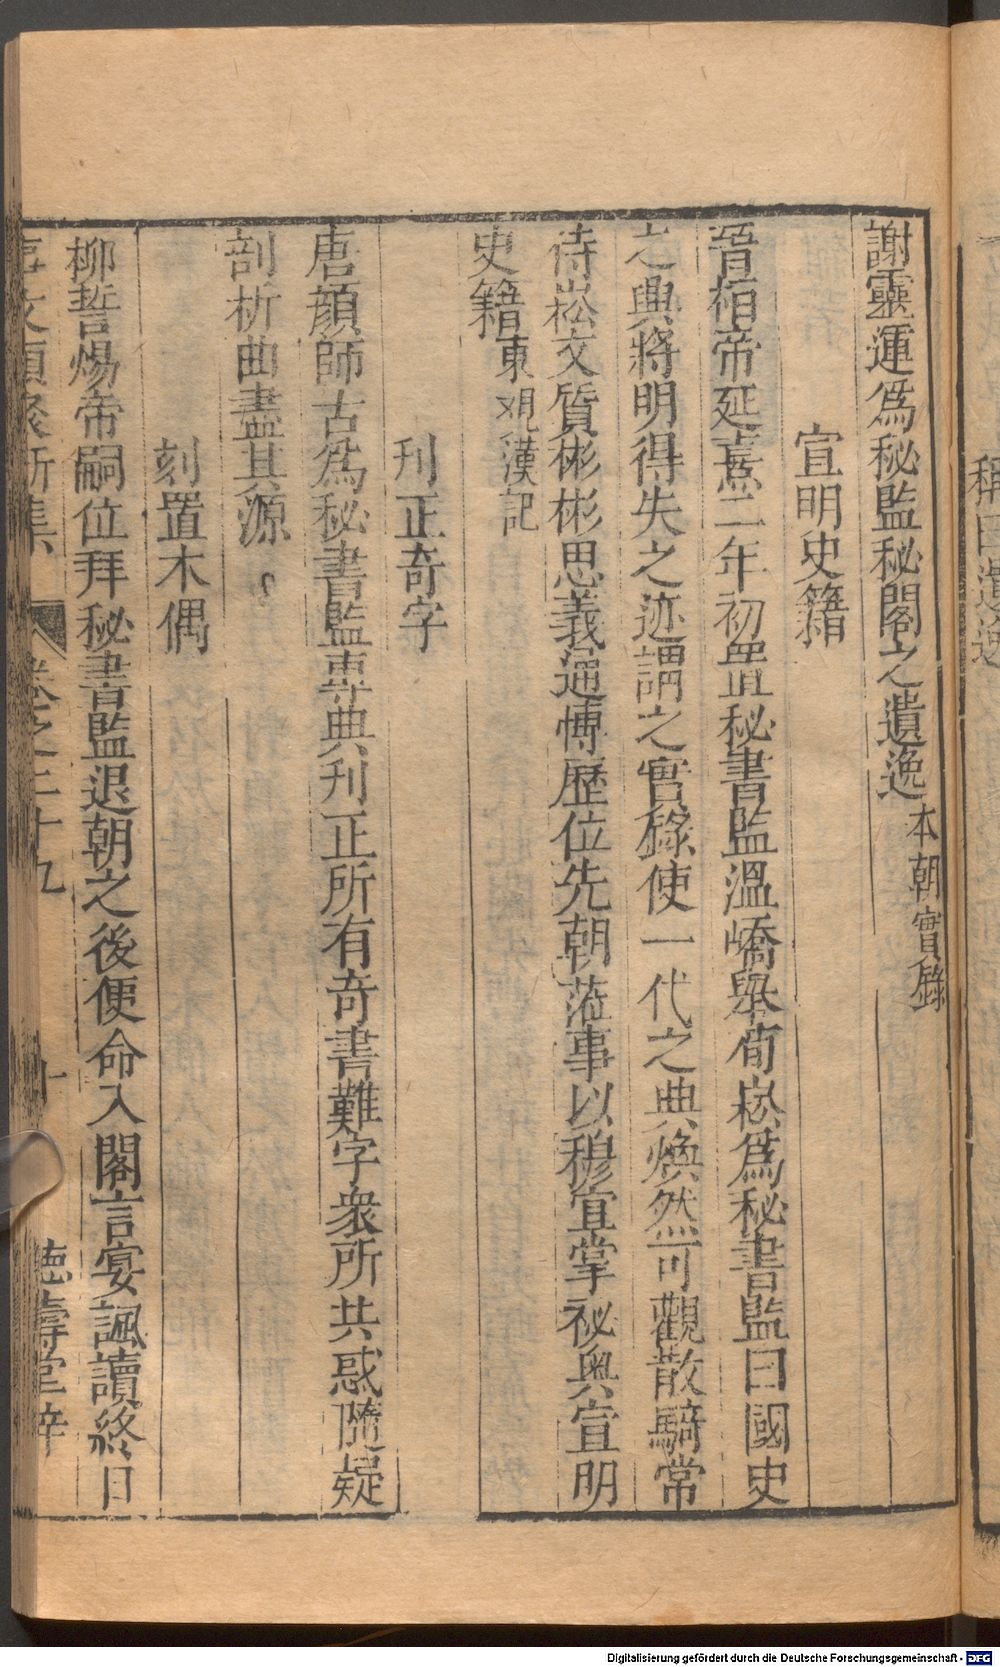 謝靈運爲秘監秘閣之遺逸本朝實錄
宣明史籍
晉桓帝延熹二年初置秘書監溫嶠舉荀崧爲秘書監曰國史
之典將明得失之迹謂之實錄使一代之典煥然可觀散騎常
侍崧文質彬彬思義通博歷位先朝蒞事以穆宜掌祕奥宣明
史籍東观漢記
刊正奇字
唐顔師古爲秘書監專典刊正所有奇書難字衆所共惑隨疑
剖析曲盡其源
刻置木偶
柳誓煬帝嗣位拜秘書監退朝之後便命入閣言宴諷讀終日
事文類聚新集 卷之二十九 十 德壽堂梓
Digitalisierung gefördert durch die Deutsche Forschungsgemeinschaft - DFG